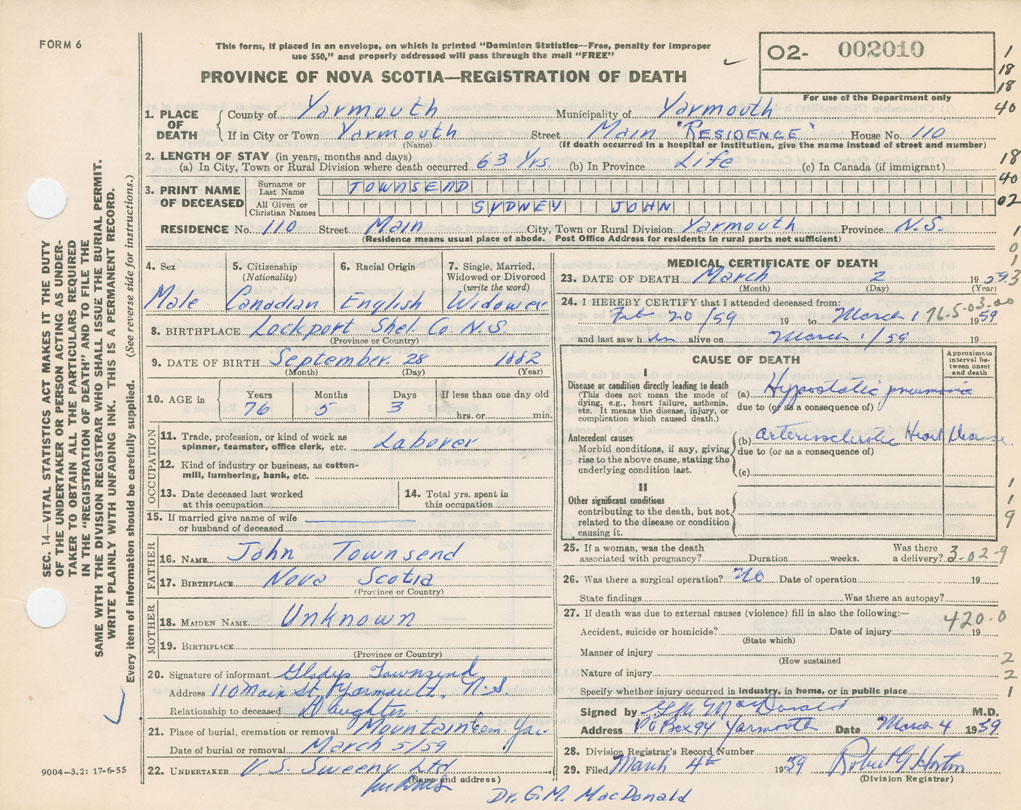 FORM 6
This form, if placed in an envelope, on which is printed "Dominion Statistics—Free, penalty for improper
use $50," and properly addressed will pass through the mail "FREE"
PROVINCE OF NOVA SCOTIA—REGISTRATION OF DEATH
02- 002010
For use of the Department only
1
18
18
40
18
40
02
1
0
1
3
1. PLACE OF DEATH
County of Yarmouth Municipality of Yarmouth
If in City or Town Yarmouth Street Main "RESIDENCE" House No. 110
(Name) (If death occurred in a hospital or institution, give the name instead of street and number)
2. LENGTH OF STAY (in years, months and days)
(a) In City, Town or Rural Division where death occurred 63 Yrs. (b) In Province Life (c) In Canada (if immigrant)
3. PRINT NAME OF DECEASED
Surname or Last Name TOWNSEND
All Given or Christian Names SYDNEY JOHN
RESIDENCE No. 110 Street Main City, Town or Rural Division Yarmouth Province N.S.
(Residence means usual place of abode. Post Office Address for residents in rural parts not sufficient)
4. Sex Male
5. Citizenship (Nationality) Canadian
6. Racial Origin English
7. Single, Married, Widowed or Divorced (write the word) Widower
8. BIRTHPLACE Lockport Shel. Co. N.S.
(Province or Country)
9. DATE OF BIRTH September 28 1882
(Month) (Day) (Year)
10. AGE in Years 76 Months 5 Days 3 If less than one day old hrs. or min.
OCCUPATION
11. Trade, profession, or kind of work as spinner, teamster, office clerk, etc. Laborer
12. Kind of industry or business, as cotton-mill, lumbering, bank, etc.
13. Date deceased last worked at this occupation
14. Total yrs. spent in this occupation
15. If married give name of wife or husband of deceased
FATHER
16. NAME John Townsend
17. BIRTHPLACE Nova Scotia
(Province or Country)
MOTHER
18. MAIDEN NAME Unknown
19. BIRTHPLACE
(Province or Country)
20. Signature of informant Gladys Townsend
Address 110 Main St. Yarmouth, N.S.
Relationship to deceased Daughter
21. Place of burial, cremation or removal Mountain Cem. Yar
Date of burial or removal March 5/59
22. UNDERTAKER V.S. Sweeny Ltd
(Name and address)
MEDICAL CERTIFICATE OF DEATH
23. DATE OF DEATH March 2 1959
(Month) (Day) (Year)
24. I HEREBY CERTIFY that I attended deceased from:
Feb 20/59 19 to March 1 1959
76-5-03-00
and last saw him alive on March 1/59 19
CAUSE OF DEATH
Approximate interval between onset and death
I
Disease or condition directly leading to death
(This does not mean the mode of dying, e.g., heart failure, asthenia, etc. It means the disease, injury, or complication which caused death.)
(a) Hypostatic pneumonia
due to (or as a consequence of)
Antecedent causes
Morbid conditions, if any, giving rise to the above cause, stating the underlying condition last.
(b) Arteriosclerotic Heart Disease
due to (or as a consequence of)
(c)
II
Other significant conditions
contributing to the death, but not related to the disease or condition causing it.
1
1
9
25. If a woman, was the death associated with pregnancy? Duration weeks. Was there a delivery? 3-02-9
26. Was there a surgical operation? No Date of operation 19
State findings Was there an autopsy?
27. If death was due to external causes (violence) fill in also the following:—
420-0
Accident, suicide or homicide? Date of injury 19
(State which)
Manner of injury 2
(How sustained)
Nature of injury 2
Specify whether injury occurred in industry, in home, or in public place 1
Signed by G M MacDonald M.D.
Address PO Box 94 Yarmouth Date March 4 1959
28. Division Registrar's Record Number
29. Filed March 4th 1959 Robert G Horton
(Division Registrar)
Dr. G.M. MacDonald
9004—3.2: 17-6-55
SEC. 14—VITAL STATISTICS ACT MAKES IT THE DUTY
OF THE UNDERTAKER OR PERSON ACTING AS UNDER-
TAKER TO OBTAIN ALL THE PARTICULARS REQUIRED
IN THE "REGISTRATION OF DEATH" AND TO FILE THE
SAME WITH THE DIVISION REGISTRAR WHO SHALL ISSUE THE BURIAL PERMIT.
WRITE PLAINLY WITH UNFADING INK. THIS IS A PERMANENT RECORD.
Every item of information should be carefully supplied. (See reverse side for instructions.)